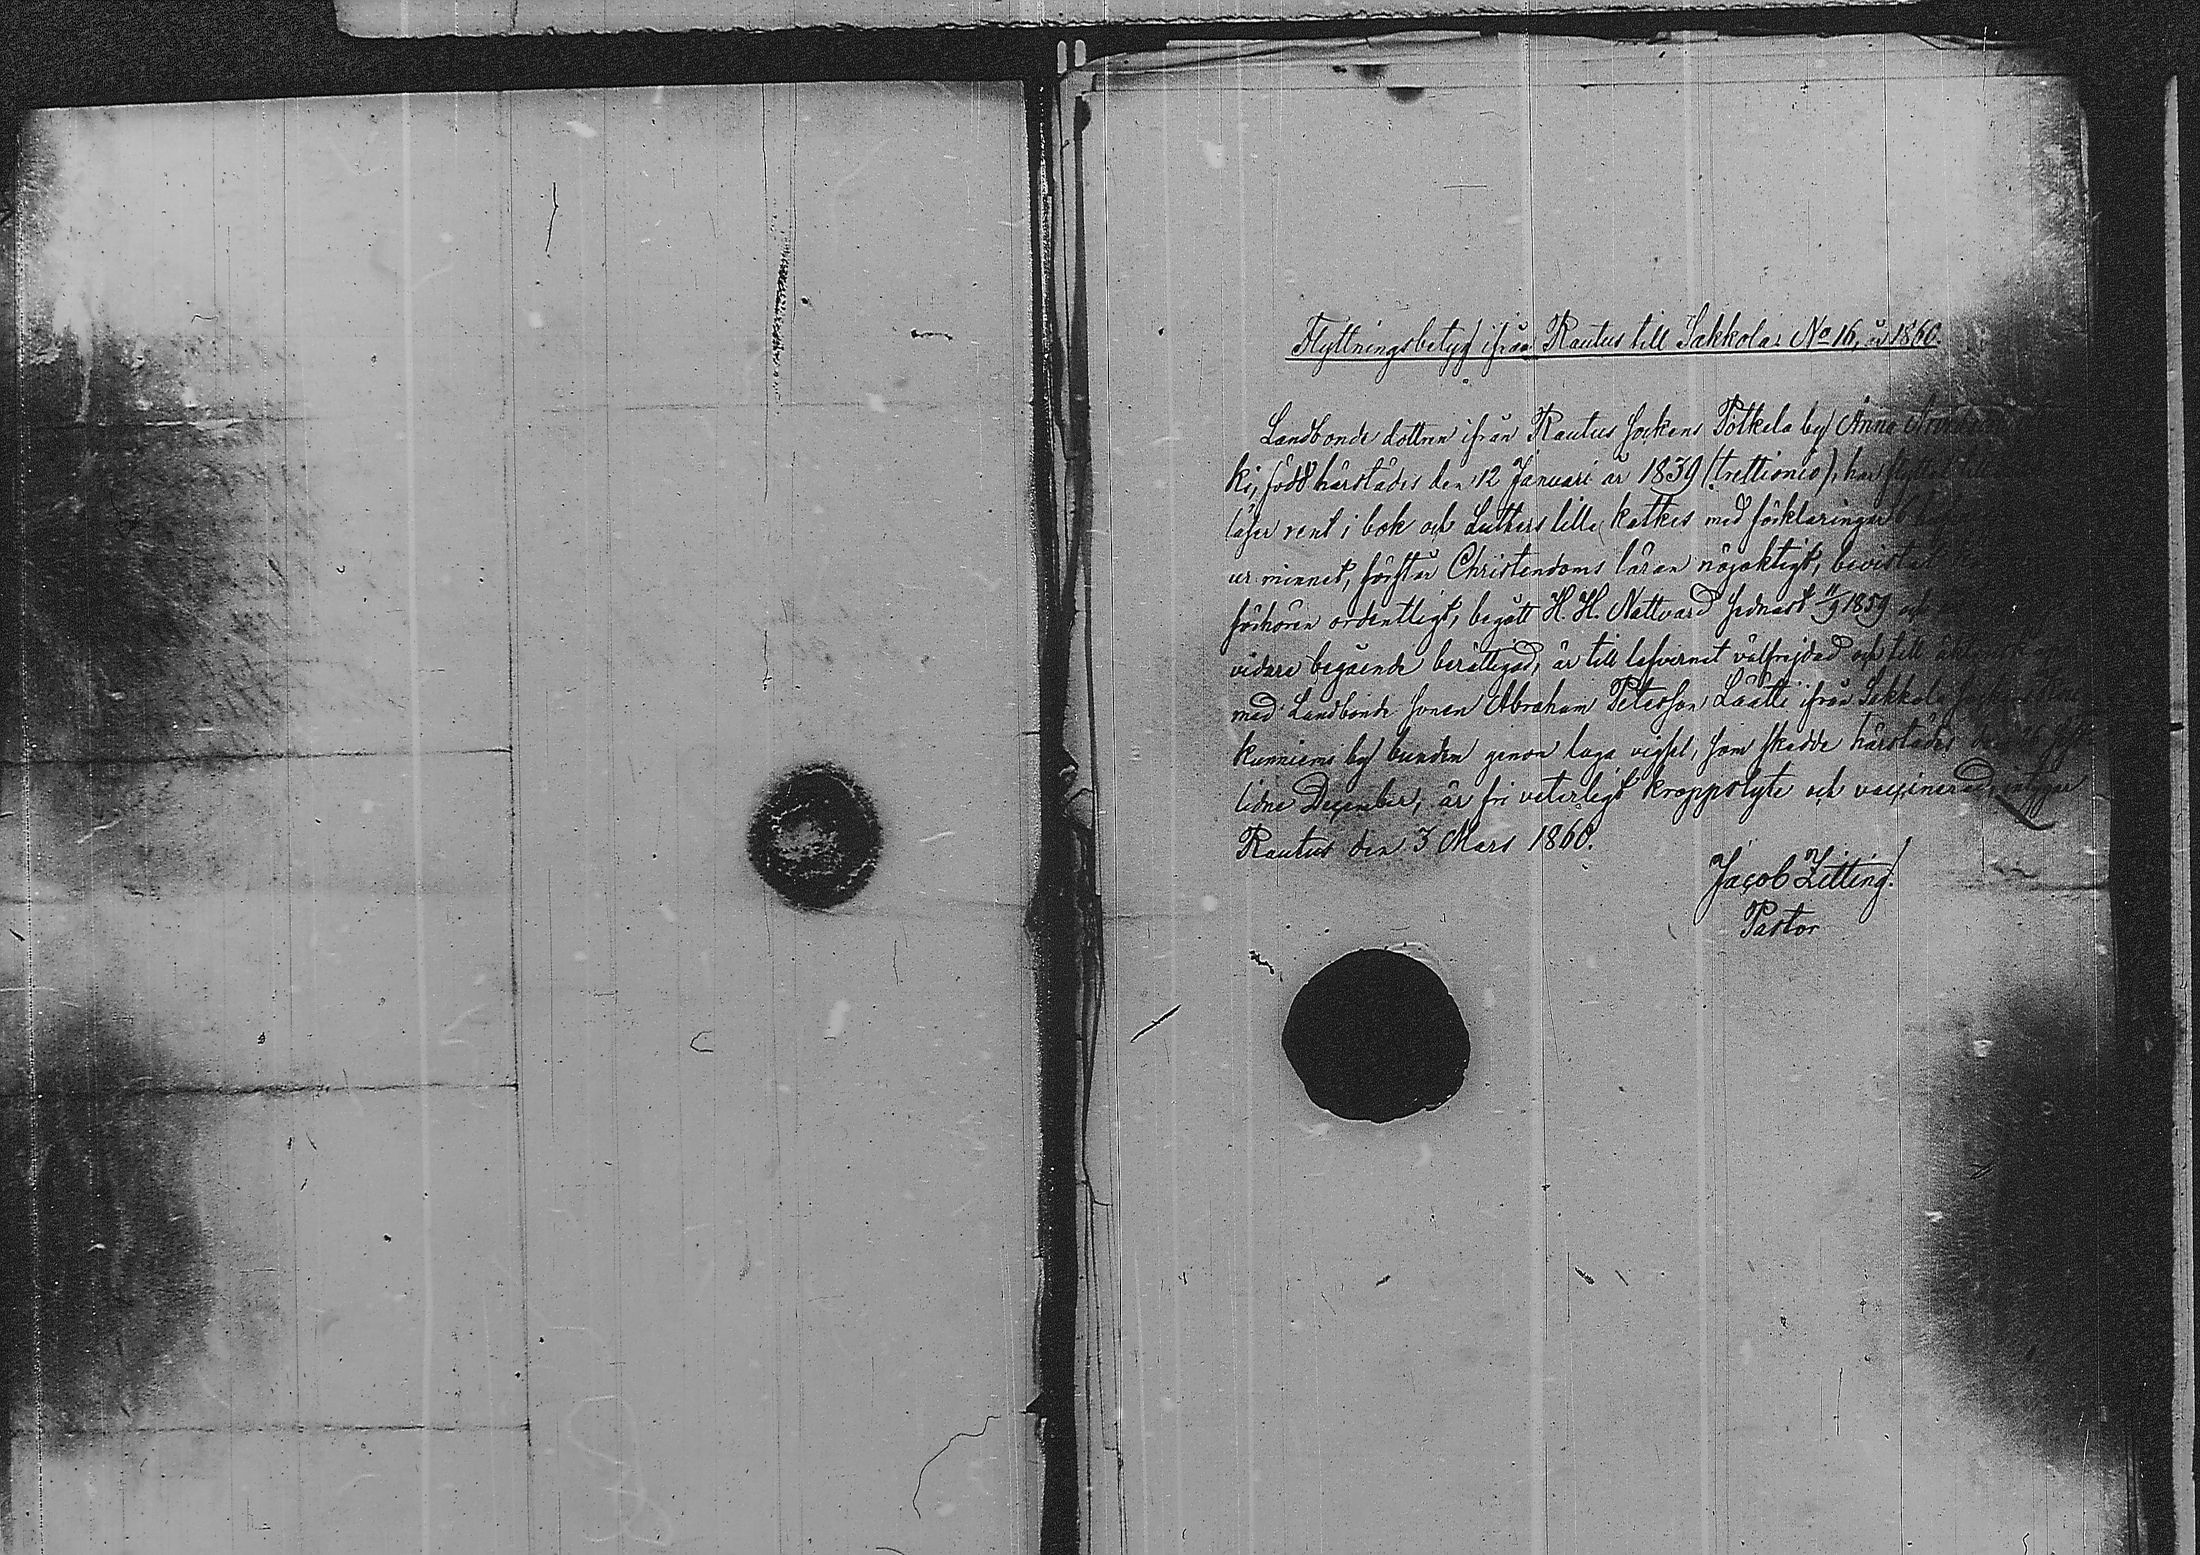 Flyttningsbetyg ifrån Rautus till Sakkola, No 16, år 1860.
Landbonde dottren ifrån Rautus Sockens Potkela by Anna
ki, född härstädes den 12 Januari år 1839 (trettionio), har
läser rent i bok och Luthers lilla katkes med förklaringar
ur minnet, förstår Christendoms läran nöjaktigt, bevistat
förhören ordentligt, begått H. H. Nattvard sednast 11/9 1859 och
vidare begående berättigad, är till lefvernet välfrejdad och till
med Landbonde sonen Abraham Petersson Läätti ifrån Sakkola
kunniemi by bunden genom laga vigsel, som skedde härstädes den 26
lidne December, är fri veterligt kroppslyte och vaccinerad, intygar
Rautus den 3 Mars 1860.
Jacob Zitting.
Pastor